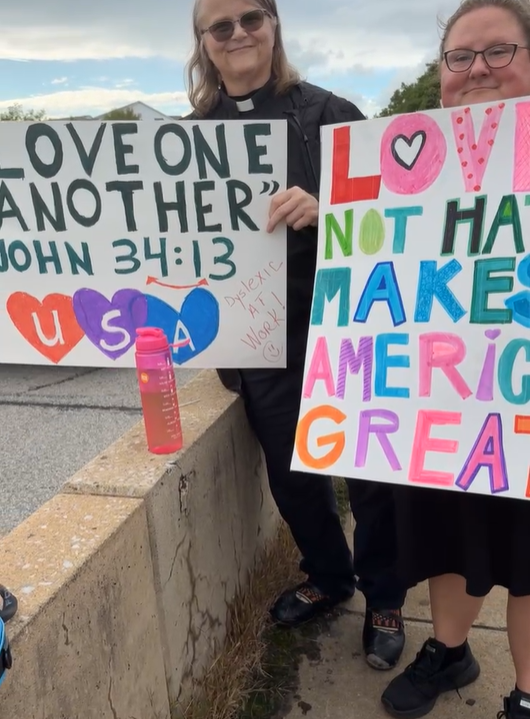 LOVE ONE
ANOTHER”
JOHN 34:13
USA
Dyslexic
AT
WORK!
LOVE
NOT HAT
MAKES
AMERIC
GREAT